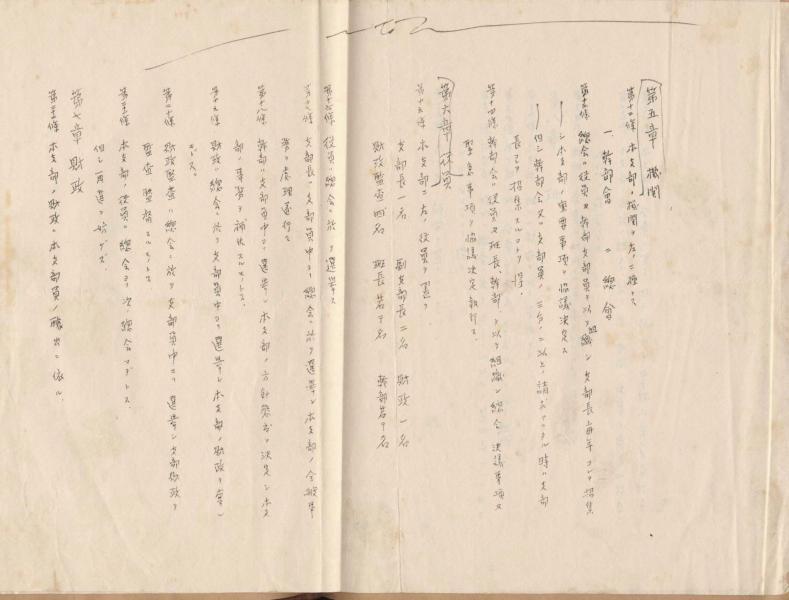 第五章 機関
第十二條 本支部ノ機関ヲ左ノ二種トス
一、幹部會 二、總會
第十三條 總会ハ役員及幹部支部員ヲ以テ組織シ支部長ハ毎年コレヲ招集
シ本支部ノ重要事項ヲ協議決定ス
但シ幹部会又ハ支部員ノ三分ノ二以上ノ請求アリタル時ハ支部
長コレヲ招集スルコトヲ得
第十四條 幹部会ハ役員及班長、幹部ヲ以テ組織シ總会ノ決議事項及
緊急事項ヲ協議決定執行ス
第六章 役員
第十五條 本支部ニ左ノ役員ヲ置ク
支部長一名 副支部長二名 財政一名
財政監査四名 班長若干名 幹部若干名
第十六條 役員ハ總会ニ於テ選挙ス
第十七條 支部長ハ支部員中ヨリ總会ニ於テ選挙シ本支部ノ全般事
務ヲ処理遂行ス
第十八條 幹部ハ支部員中ヨリ選挙シ本支部ノ方針態度ヲ決定シ本支
部ノ事務ヲ補佐スルモノトス
第十九條 財政ハ總会ニ於テ支部員中ヨリ選挙シ本支部ノ財政ヲ
モノトス
第二十條 財政監査ハ總会ニ於テ支部員中ヨリ選挙シ支部財政ヲ
監査監督スルモノトス
本支部ノ役員ハ總会ヨリ次ノ總会マデトス
但シ再選ヲ妨ゲズ
第七章 財政
本支部ノ財政ハ本支部員ノ醵出ニ依ル